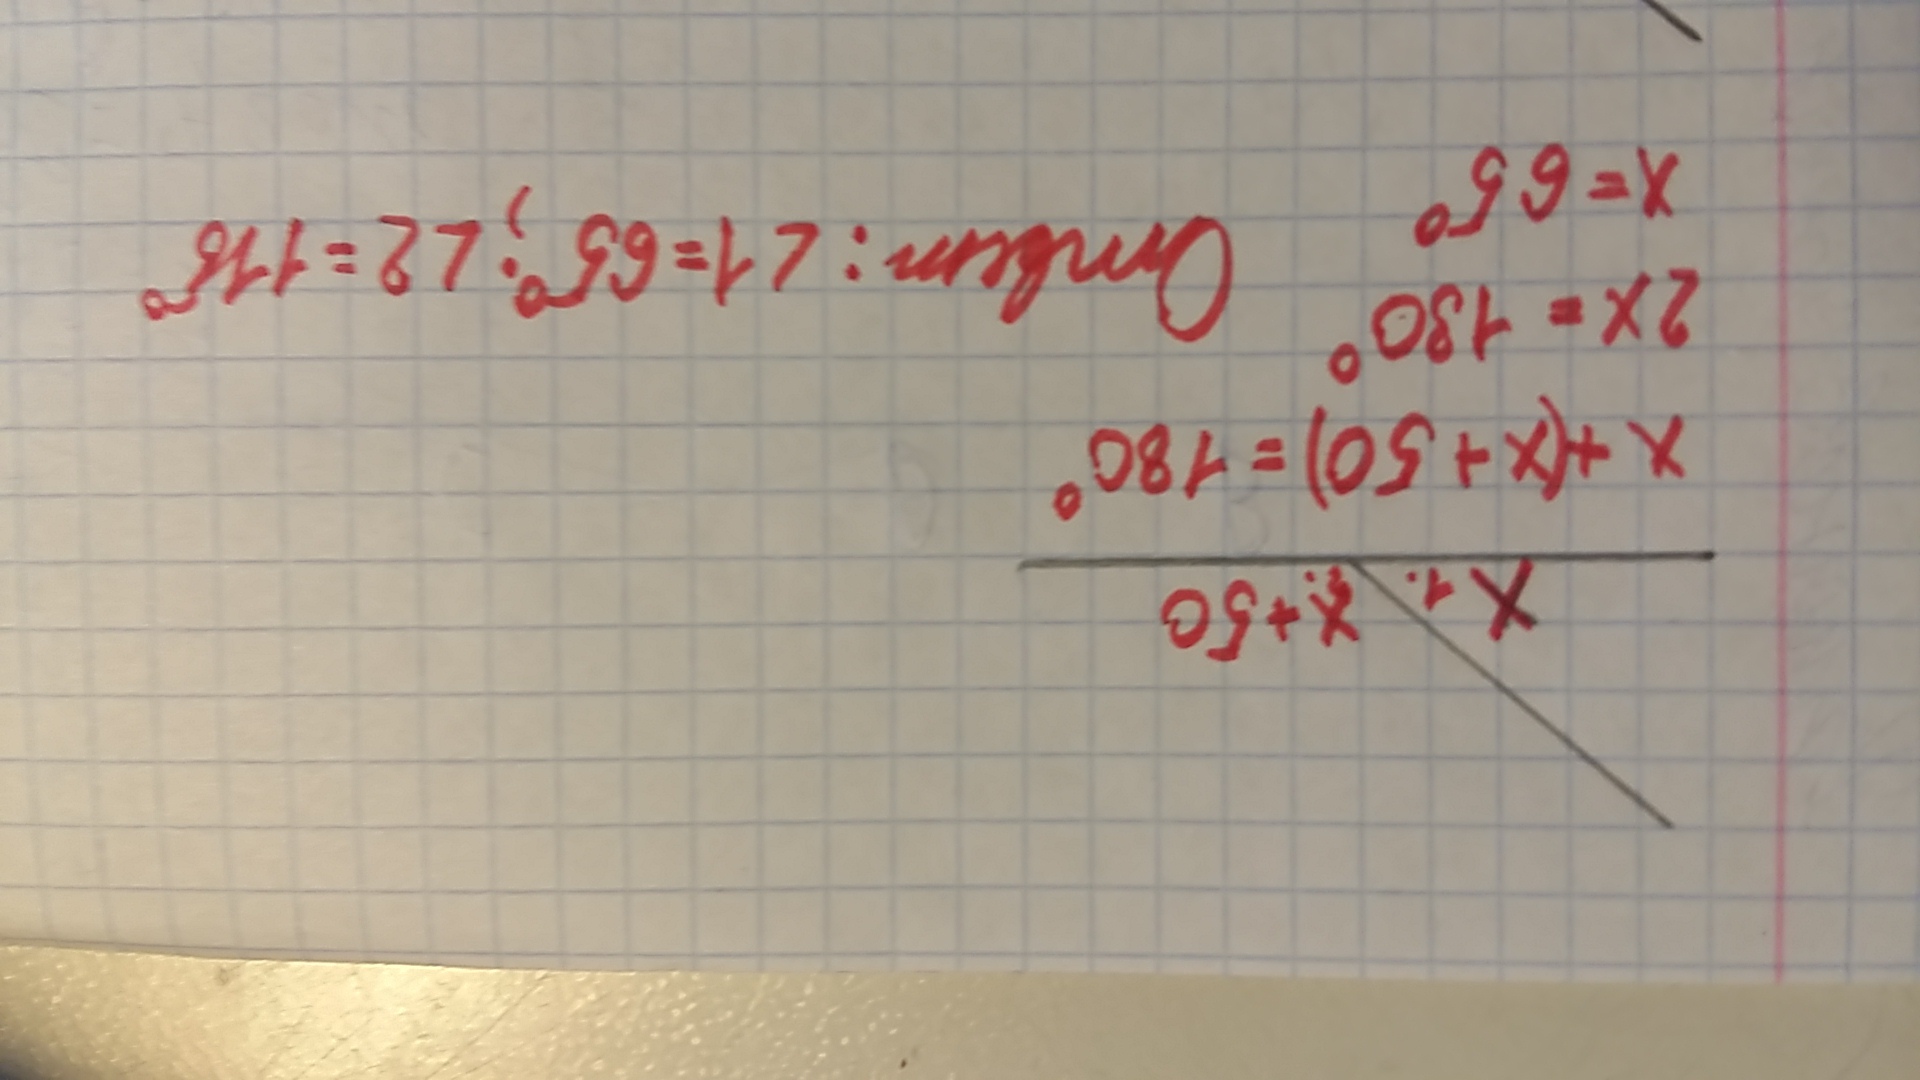 x 1. 2. x+50
x+(x+50)=180°
2x=130°
x=65°
Ответ: ∠1=65°; ∠2=115°